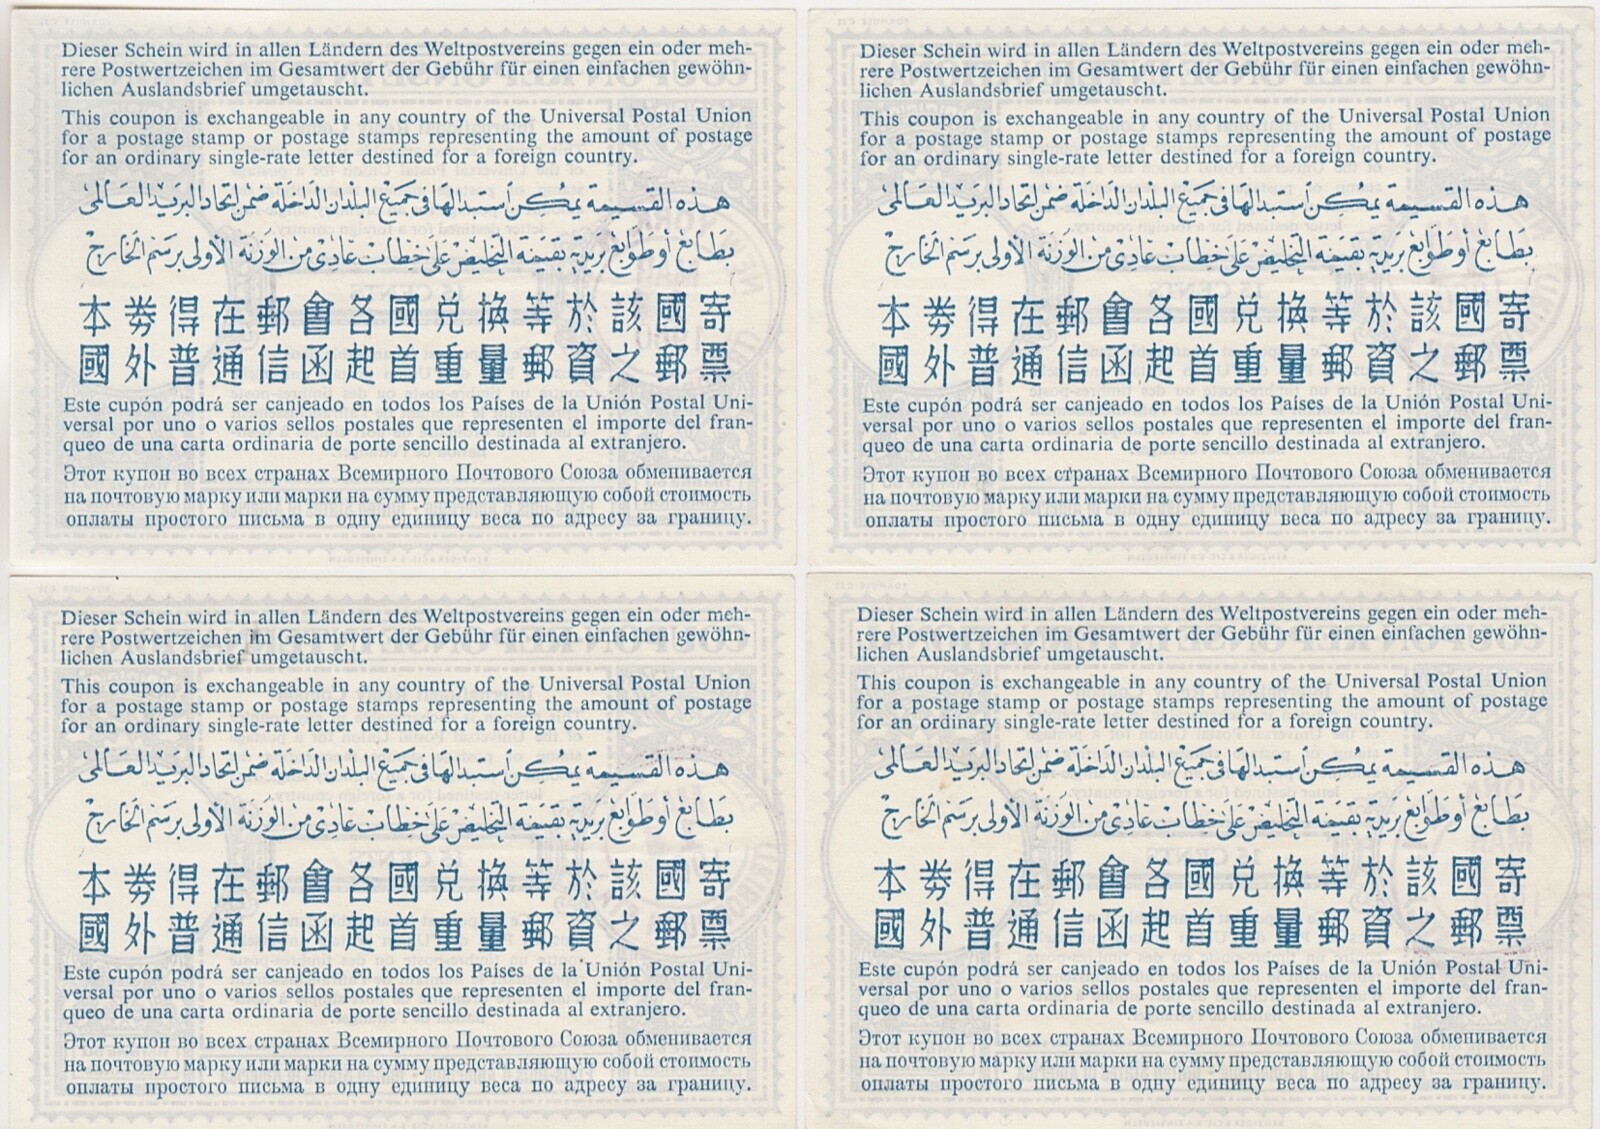 Dieser Schein wird in allen Ländern des Weltpostvereins gegen ein oder meh-
rere Postwertzeichen im Gesamtwert der Gebühr für einen einfachen gewöhn-
lichen Auslandsbrief umgetauscht.
This coupon is exchangeable in any country of the Universal Postal Union
for a postage stamp or postage stamps representing the amount of postage
for an ordinary single-rate letter destined for a foreign country.
هذه القسيمة يمكن استبدالها في جميع البلدان الداخلة ضمن اتحاد البريد العالمى
بطابع أو طوابع بريدية بقيمة التخليص على خطابات عادى من الوزنة الأولى برسم الخارج
本券得在郵會各國兌換等於該國寄
國外普通信函起首重量郵資之郵票
Este cupón podrá ser canjeado en todos los Países de la Unión Postal Uni-
versal por uno o varios sellos postales que representen el importe del fran-
queo de una carta ordinaria de porte sencillo destinada al extranjero.
Этот купон во всех странах Всемирного Почтового Союза обменивается
на почтовую марку или марки на сумму представляющую собой стоимость
оплаты простого письма в одну единицу веса по адресу за границу.
Dieser Schein wird in allen Ländern des Weltpostvereins gegen ein oder meh-
rere Postwertzeichen im Gesamtwert der Gebühr für einen einfachen gewöhn-
lichen Auslandsbrief umgetauscht.
This coupon is exchangeable in any country of the Universal Postal Union
for a postage stamp or postage stamps representing the amount of postage
for an ordinary single-rate letter destined for a foreign country.
هذه القسيمة يمكن استبدالها في جميع البلدان الداخلة ضمن اتحاد البريد العالمى
بطابع أو طوابع بريدية بقيمة التخليص على خطابات عادى من الوزنة الأولى برسم الخارج
本券得在郵會各國兌換等於該國寄
國外普通信函起首重量郵資之郵票
Este cupón podrá ser canjeado en todos los Países de la Unión Postal Uni-
versal por uno o varios sellos postales que representen el importe del fran-
queo de una carta ordinaria de porte sencillo destinada al extranjero.
Этот купон во всех странах Всемирного Почтового Союза обменивается
на почтовую марку или марки на сумму представляющую собой стоимость
оплаты простого письма в одну единицу веса по адресу за границу.
Dieser Schein wird in allen Ländern des Weltpostvereins gegen ein oder meh-
rere Postwertzeichen im Gesamtwert der Gebühr für einen einfachen gewöhn-
lichen Auslandsbrief umgetauscht.
This coupon is exchangeable in any country of the Universal Postal Union
for a postage stamp or postage stamps representing the amount of postage
for an ordinary single-rate letter destined for a foreign country.
هذه القسيمة يمكن استبدالها في جميع البلدان الداخلة ضمن اتحاد البريد العالمى
بطابع أو طوابع بريدية بقيمة التخليص على خطابات عادى من الوزنة الأولى برسم الخارج
本券得在郵會各國兌換等於該國寄
國外普通信函起首重量郵資之郵票
Este cupón podrá ser canjeado en todos los Países de la Unión Postal Uni-
versal por uno o varios sellos postales que representen el importe del fran-
queo de una carta ordinaria de porte sencillo destinada al extranjero.
Этот купон во всех странах Всемирного Почтового Союза обменивается
на почтовую марку или марки на сумму представляющую собой стоимость
оплаты простого письма в одну единицу веса по адресу за границу.
Dieser Schein wird in allen Ländern des Weltpostvereins gegen ein oder meh-
rere Postwertzeichen im Gesamtwert der Gebühr für einen einfachen gewöhn-
lichen Auslandsbrief umgetauscht.
This coupon is exchangeable in any country of the Universal Postal Union
for a postage stamp or postage stamps representing the amount of postage
for an ordinary single-rate letter destined for a foreign country.
هذه القسيمة يمكن استبدالها في جميع البلدان الداخلة ضمن اتحاد البريد العالمى
بطابع أو طوابع بريدية بقيمة التخليص على خطابات عادى من الوزنة الأولى برسم الخارج
本券得在郵會各國兌換等於該國寄
國外普通信函起首重量郵資之郵票
Este cupón podrá ser canjeado en todos los Países de la Unión Postal Uni-
versal por uno o varios sellos postales que representen el importe del fran-
queo de una carta ordinaria de porte sencillo destinada al extranjero.
Этот купон во всех странах Всемирного Почтового Союза обменивается
на почтовую марку или марки на сумму представляющую собой стоимость
оплаты простого письма в одну единицу веса по адресу за границу.